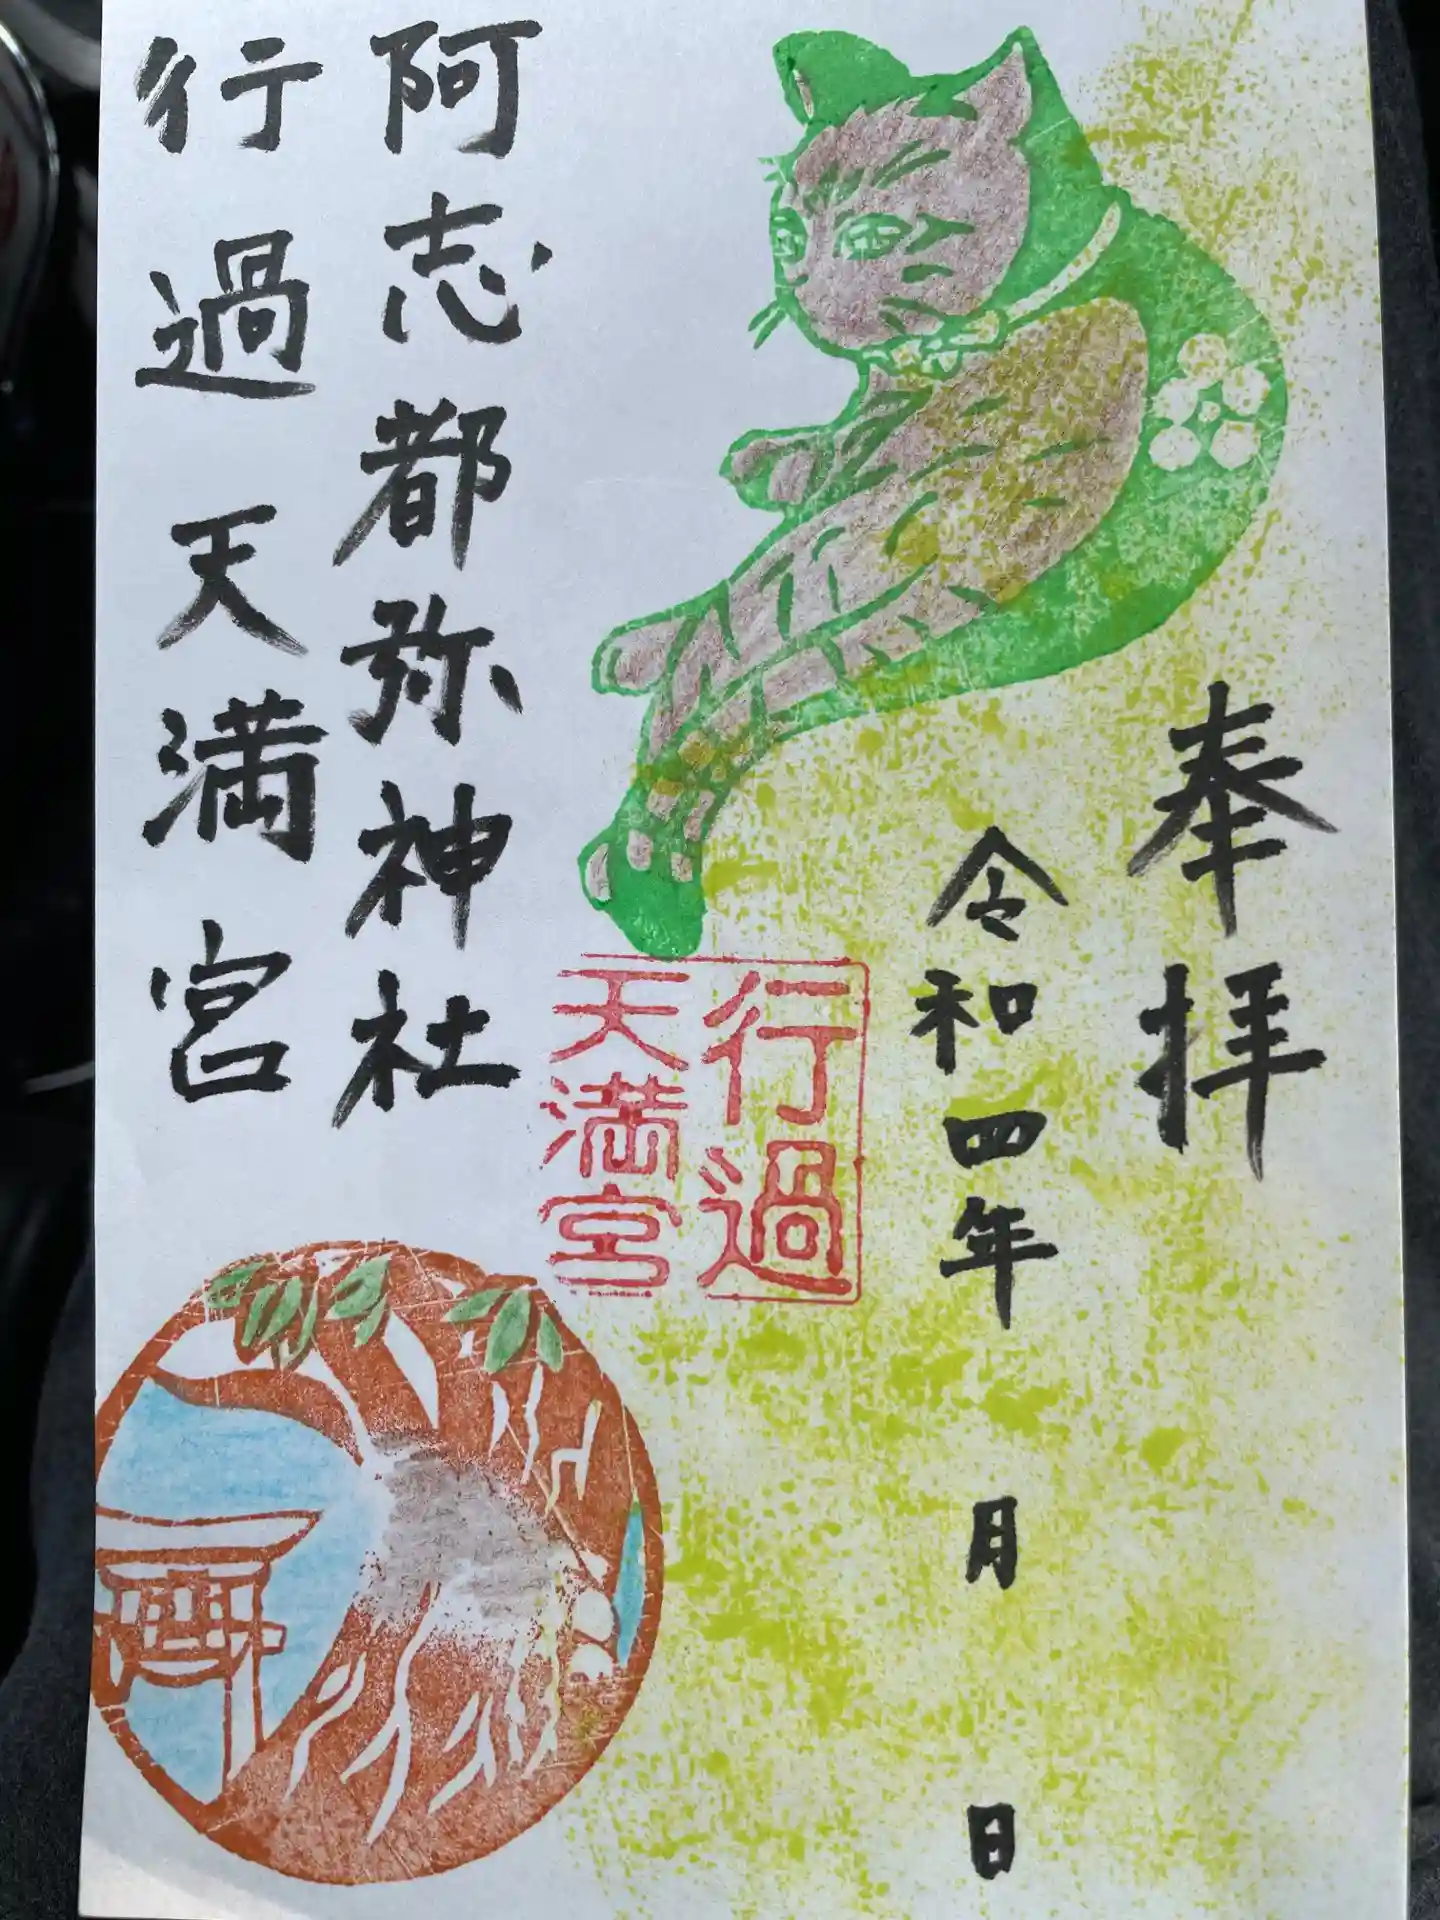 奉拝
令和四年 月 日
行過
天満宮
阿志都弥神社
行過天満宮